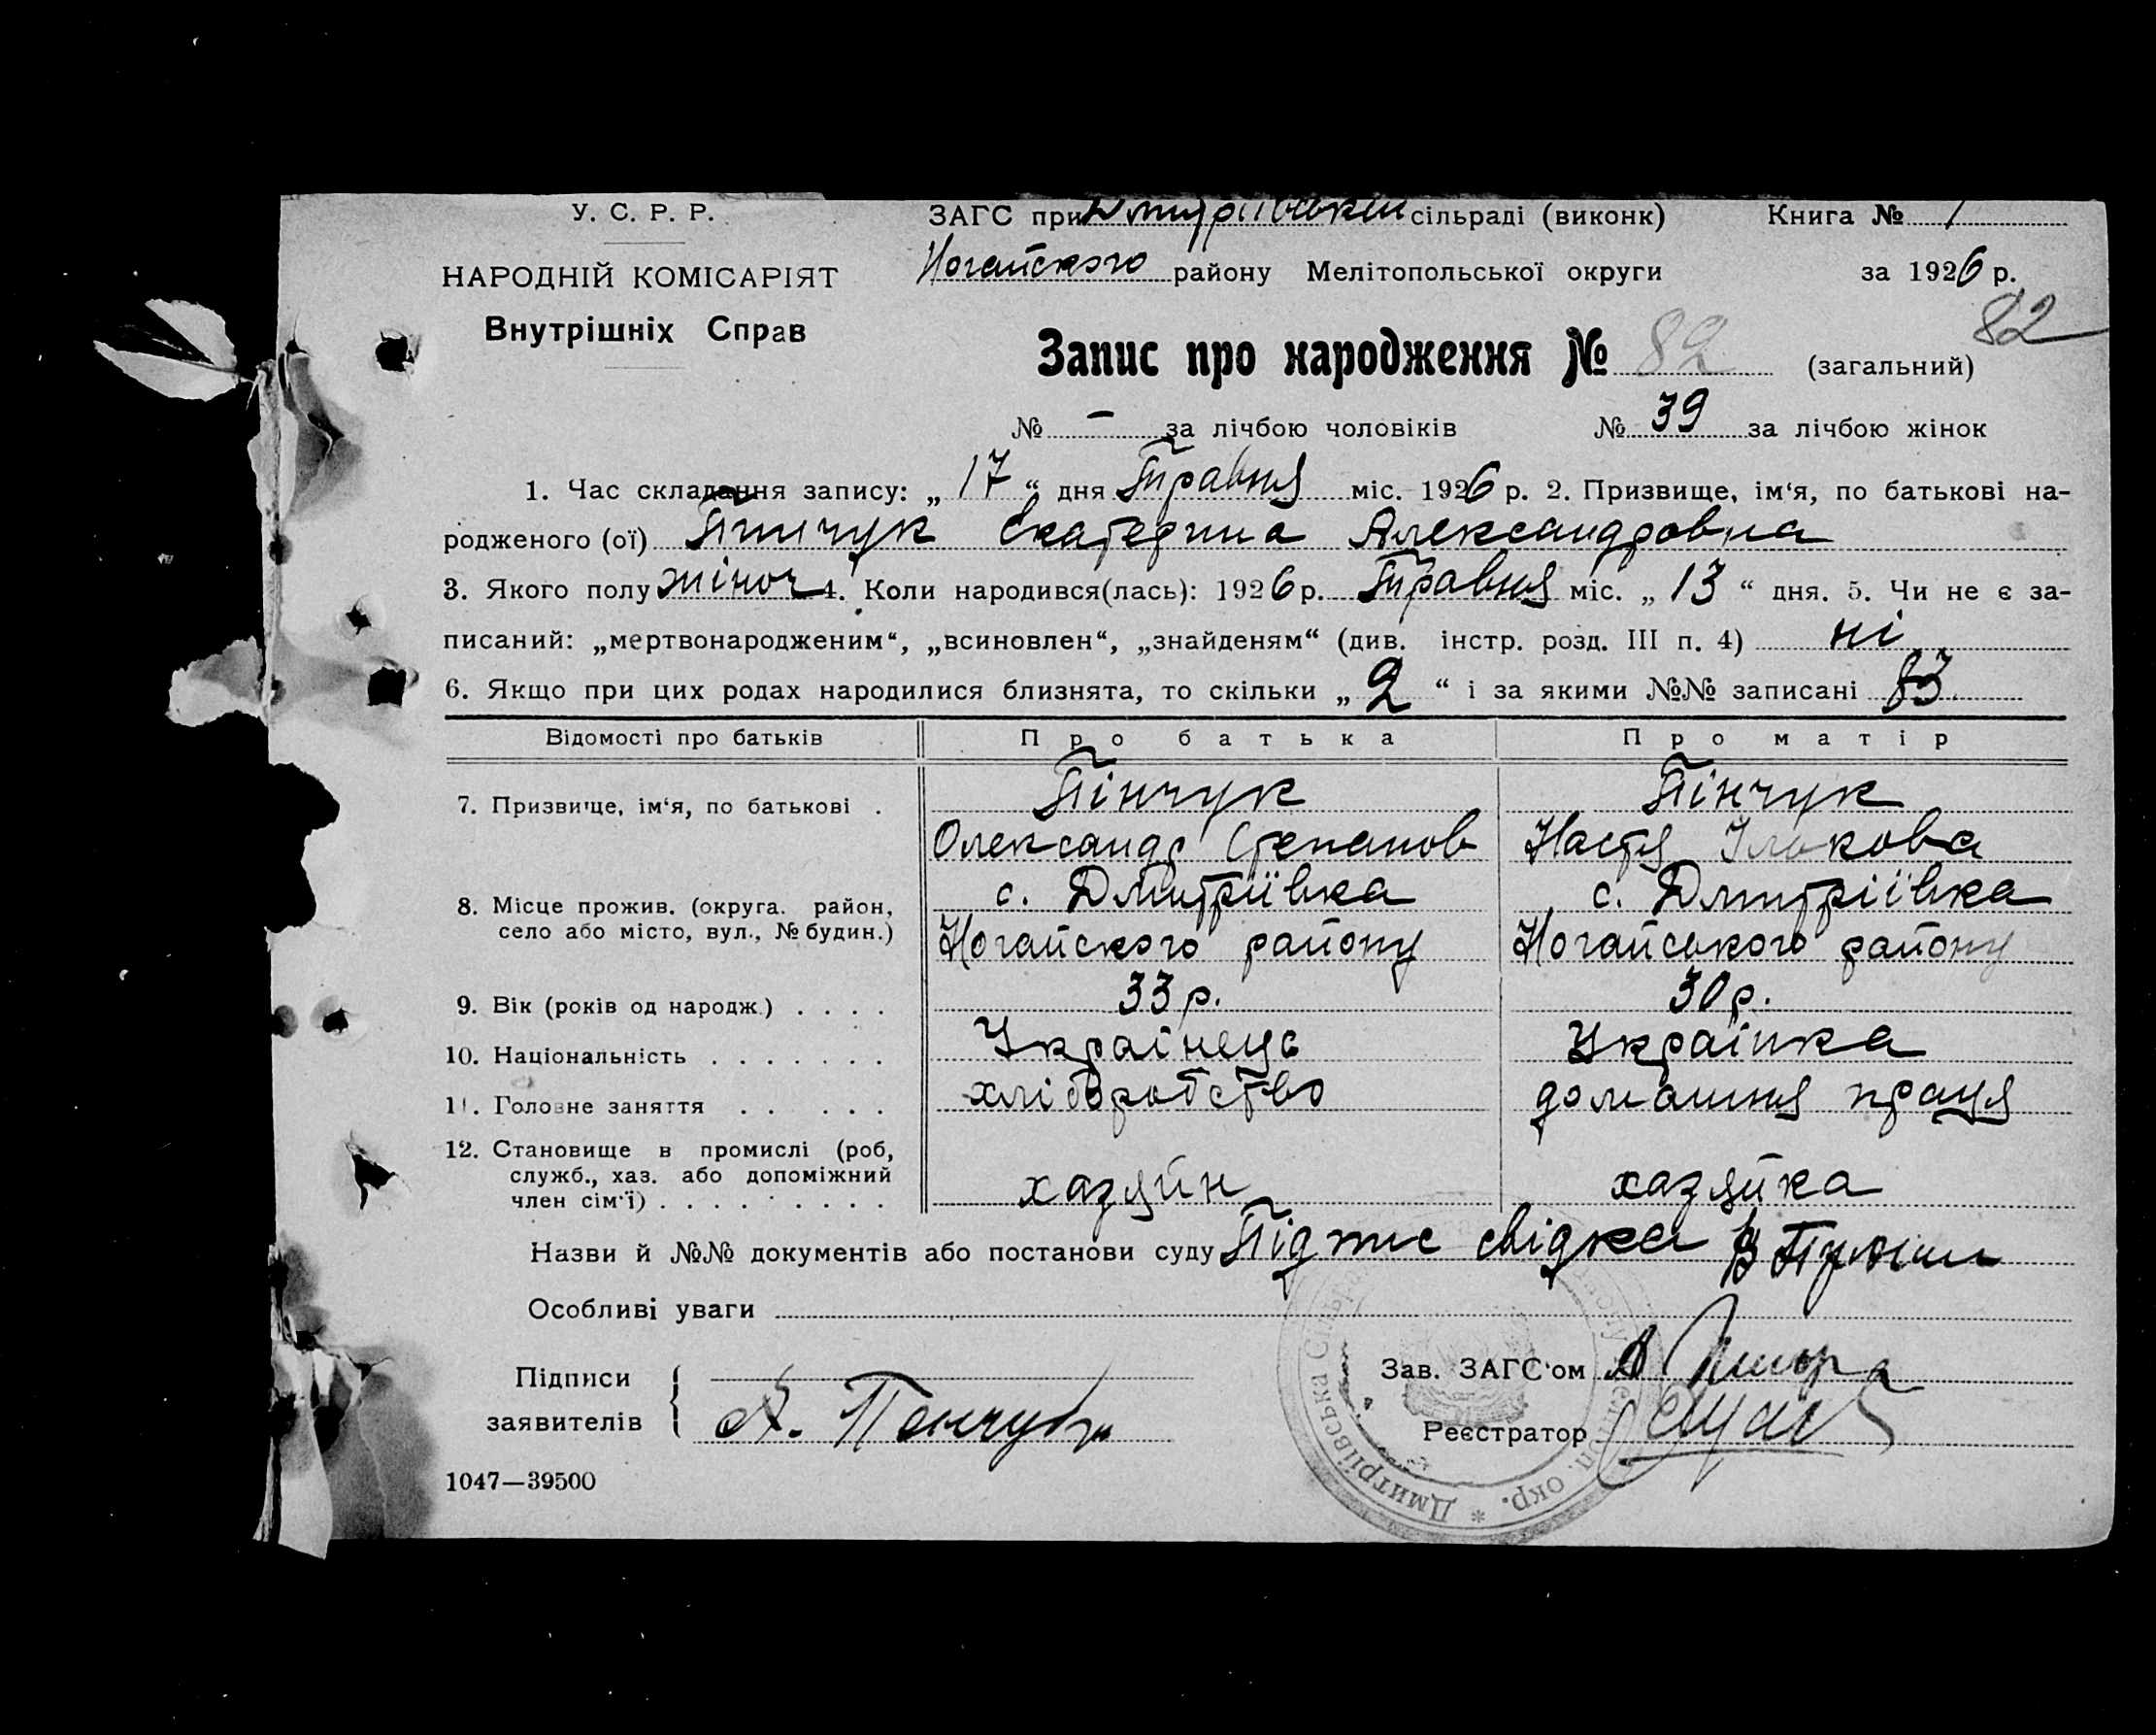 У. С. Р. Р.
НАРОДНІЙ КОМІСАРІЯТ
Внутрішніх Справ
ЗАГС при Дмитріївській сільраді (виконк)
Книга № 1
Ногайского району Мелітопольської округи
за 1926 р.
82
Запис про народження № 82 (загальний)
№ – за лічбою чоловіків № 39 за лічбою жінок
1. Час складання запису: „ 17 “ дня Травня міс. 1926 р. 2. Призвище, ім‘я, по батькові на-
родженого (ої) Пінчук Екатерина Александровна
3. Якого полу жіноч 4. Коли народився(лась): 1926 р. Травня міс. „ 13 “ дня. 5. Чи не є за-
писаний: „мертвонародженим“, „всиновлен“, „знайденям“ (див. інстр. розд. III п. 4) ні
6. Якщо при цих родах народилися близнята, то скільки „ 2 “ і за якими №№ записані 83
Відомості про батьків Про батька Про матір
7. Призвище, ім‘я, по батькові . Пінчук Пінчук
Олександр Степанов Настя Ількова
8. Місце прожив. (округа. район, с. Дмитріївка с. Дмитріївка
село або місто, вул., № будин.) Ногайского району Ногайського району
9. Вік (років од народж.) . . . . 33 р. 30 р.
10. Національність . . . . . . . Українець Українка
11. Головне заняття . . . . . хліборобство домашня праця
12. Становище в промислі (роб,
служб., хаз. або допоміжний
член сім‘ї) . . . . . . . . хазяйн хазяйка
Назви й №№ документів або постанови суду Підпис свідка В
Особливі уваги
Підписи
заявителів
А. Пенчук
Зав. ЗАГС‘ом А
Реєстратор
Дмитріївська окр. *
1047—39500